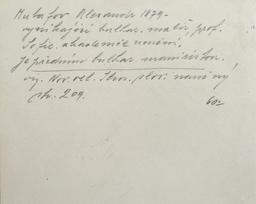 Mutafov Alexandr 1879-
vynikající bulhar. malíř, prof.
Sofic. akademie umění.
Je předním bulhar. marinistou.
viz. Nov. vel. Ilus. slov. naučný
str. 209.
602